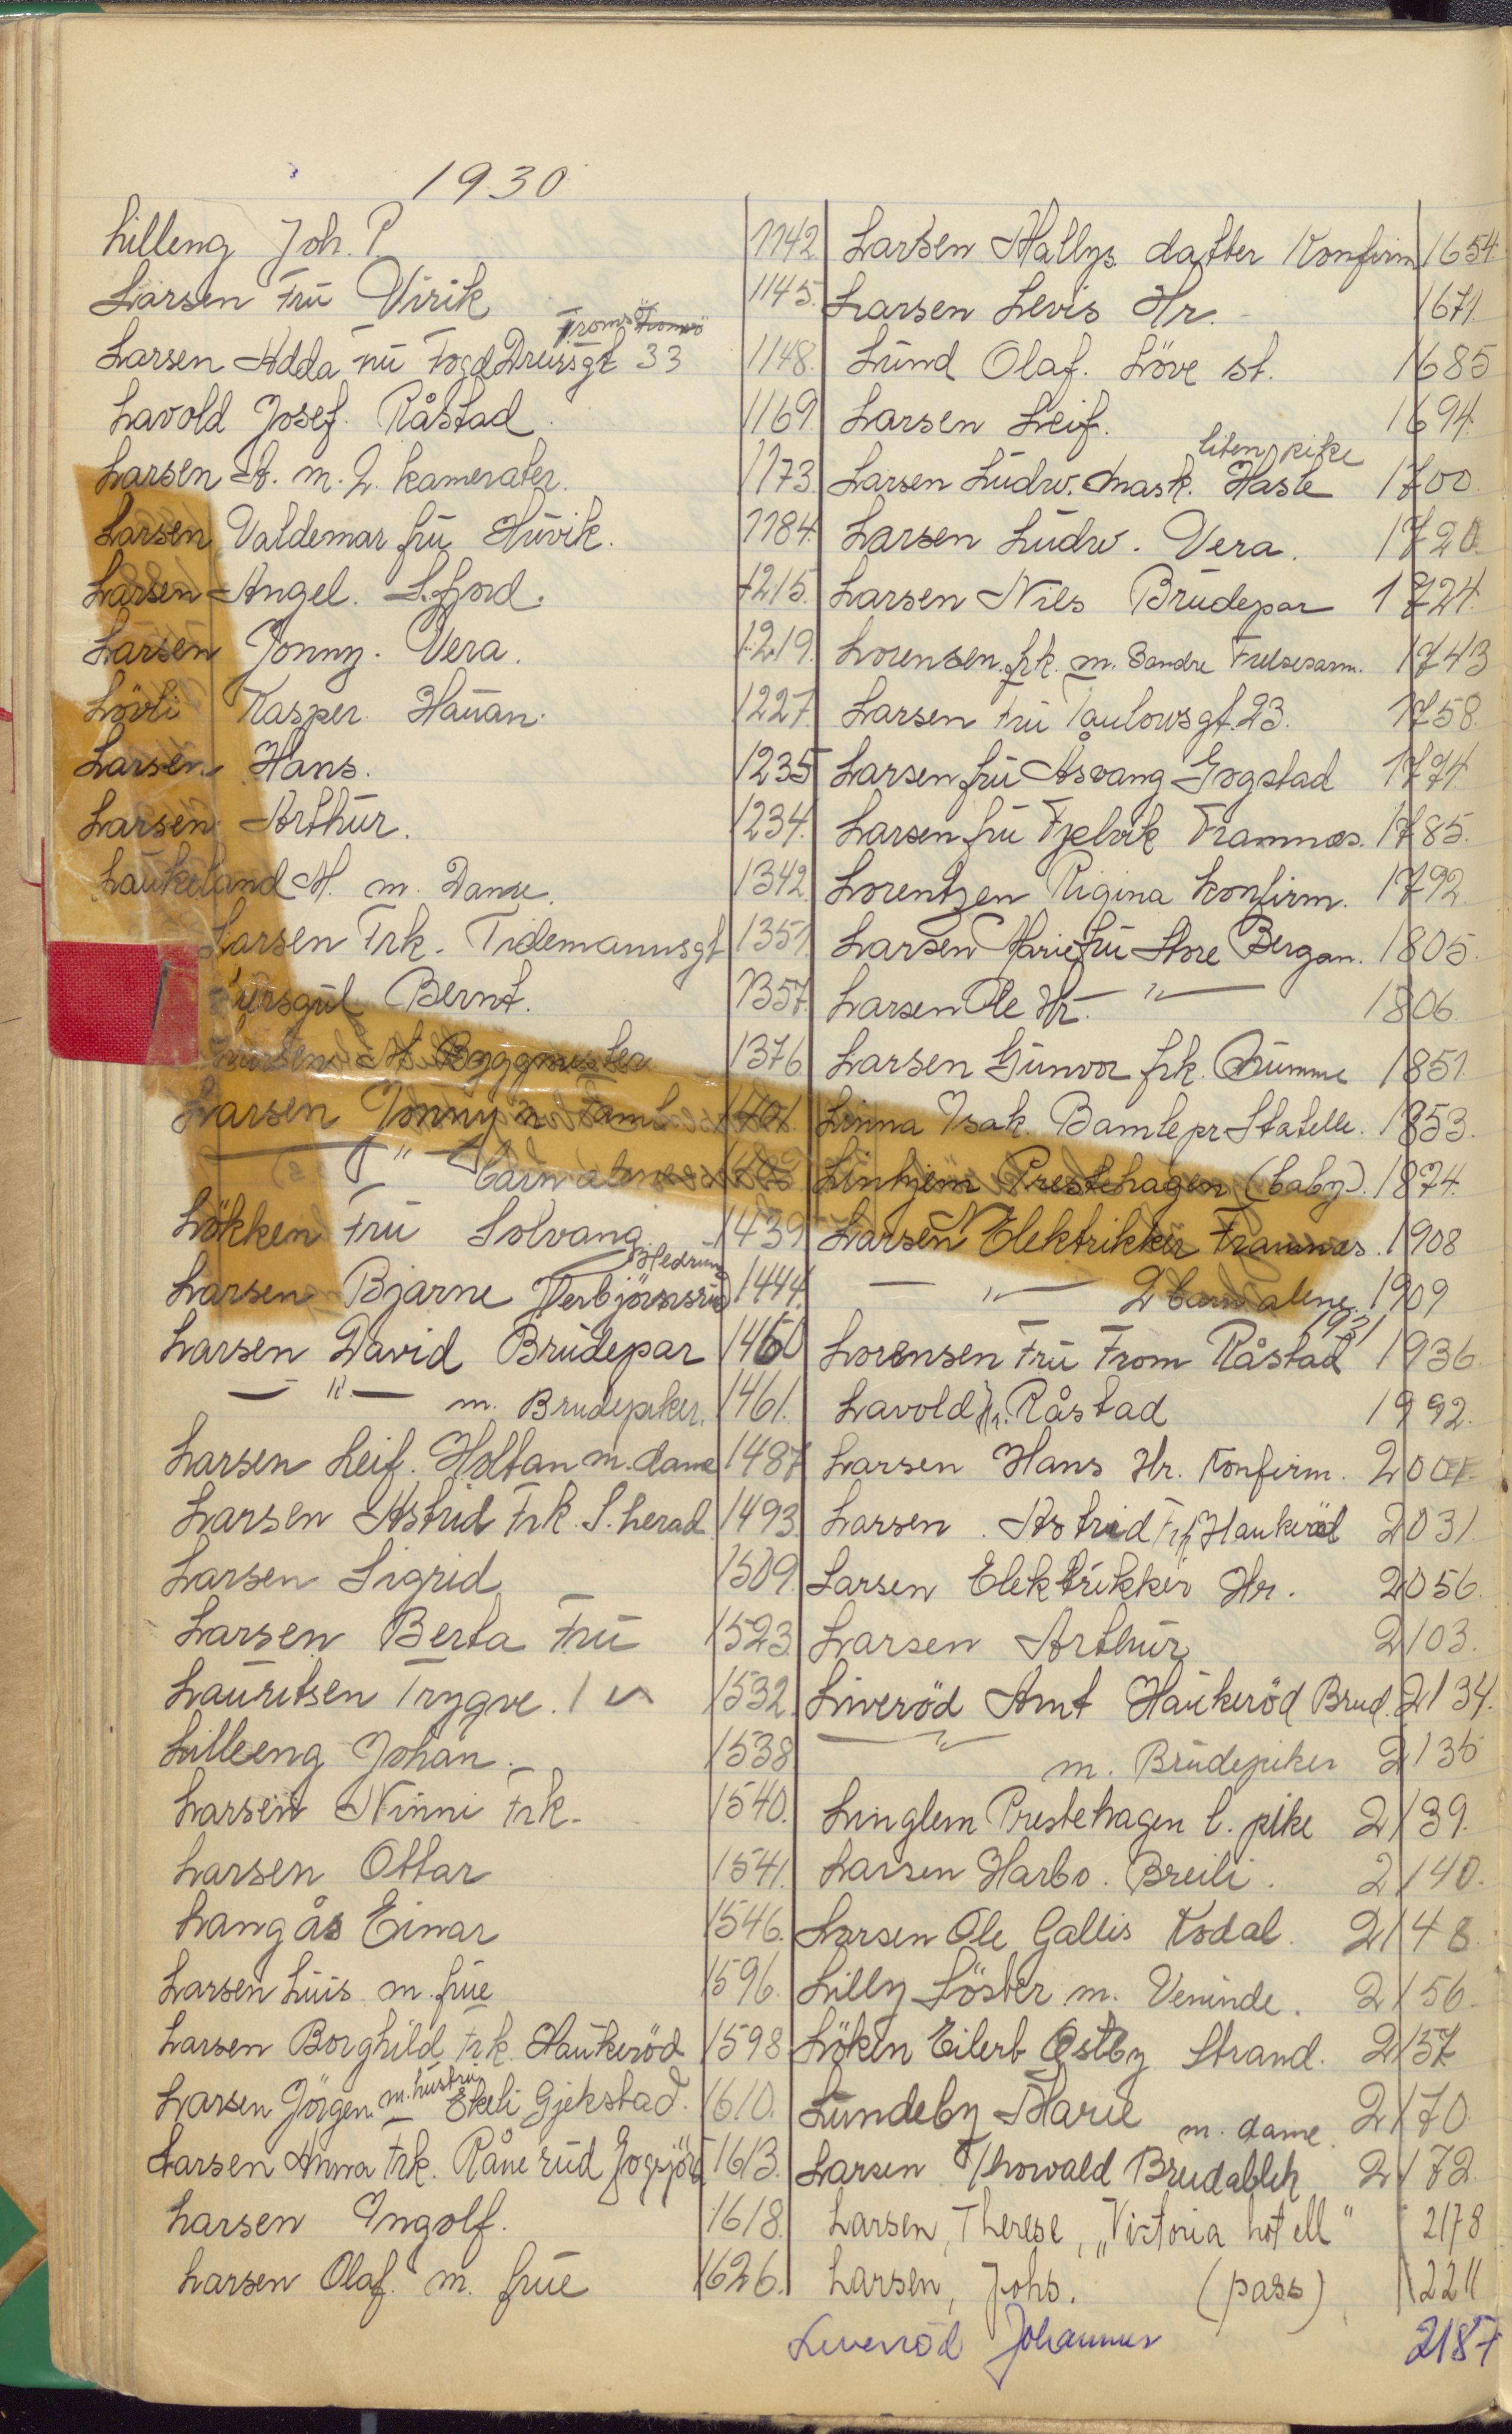 1930
Lilleng Joh. P 1142
Larsen Frü Virik 1145.
Tromsö
Larsen Adda Frü Foged Dreiersgt 33 1148.
Lavold Josef. Råstad. 1169
Larsen A. m. 2. kamerater. 1173.
Larsen Valdemar frü Hüvik. 1184
Larsen Angel. S.fjord. 1215.
Larsen Jonny. Vera. 1219.
Lövli Kasper. Haüan. 1227.
Larsen Hans. 1235
Larsen Arthür. 1234.
Laükeland M. m. Dame. 1342
Larsen Frk. Tidemannsgt 1351.
Bernt. 1357.
Byggmester 1376
Larsen Jonny m Famil 1401.
— " — barn alene
Lökken Frü Solvang 1439
Hedrum
Larsen Bjarne Verbjörnsrüd 1444.
Larsen David Brüdepar 1460
— " — m. Brudepiker. 1461.
Larsen Leif. Holtan m. dame 1487
Larsen Astrid Frk. S.herad 1493.
Larsen Sigrid 1509.
Larsen Berta Frü 1523.
Lauritsen Trygve. 1532.
Lilleeng Johan. 1538
Larsen Ninni Frk. 1540.
Larsen Ottar 1541.
Langås Einar 1546.
Larsen Lüis m. früe 1596.
Larsen Borghild Frk. Haükeröd 1598
Larsen Jörgen m. hüstrü Ekeli Gjekstad. 1610.
Larsen Anna Frk. Rånerüd 1613.
Larsen Ingolf. 1618.
Larsen Olaf. m. früe 1626.
Larsen Hallys datter Konfirm 1654
Larsen Levis Hr. 1671.
Lünd Olaf. Löve st. 1685
Larsen Leif. 1694.
liten pike
Larsen Lüdw. Mask. Hasle 1700.
Larsen Lüdw. Vera. 1720.
Larsen Nils Brüdepar 1724.
Lorensen. frk. m. 3andre Frelsesarm. 1743
Larsen Frü Taulowsgt. 23. 1758.
Larsen frü Åsvang Gogstad 1774.
Larsen frü Fjelvik Framnæs. 1785.
Lorentzen Rigina konfirm. 1792.
Larsen Marie frü Store Bergan. 1805.
Larsen Ole Hr. — " — 1806.
Larsen Günvor frk. Brümme 1851
Linna Isak. Bamle pr Statelle. 1853.
Linhjem Prestehagen (baby). 1874.
Larsen Elektrikker Framnæs. 1908
— " — 2 barn alene. 1909
1931
Lorensen Frü From Råstad 1936.
Lavold Hr. Råstad 1992.
Larsen Hans Hr. Konfirm. 2001
Larsen Astrid Frk Haukeröd 2031.
Larsen Elektrikker Hr. 2056.
Larsen Arthür 2103.
Liveröd Arnt Haükeröd Brud. 2134.
— " — m. Brüdepiker 2135
Linglem Prestehagen l. pike 2139.
Larsen Harbo. Breili. 2140.
Larsen Ole Gallis Kodal. 2148
Lilly Söster m. Veninde. 2156.
Löken Eilert Østby Strand. 2157.
Lundeby Marie m. dame. 2170.
Larsen Thorvald Brudableh 2172.
Larsen, Therese, „Victoria hotell" 2178
Larsen, Johs. (pass) 2211
Liveröd Johannes 2187